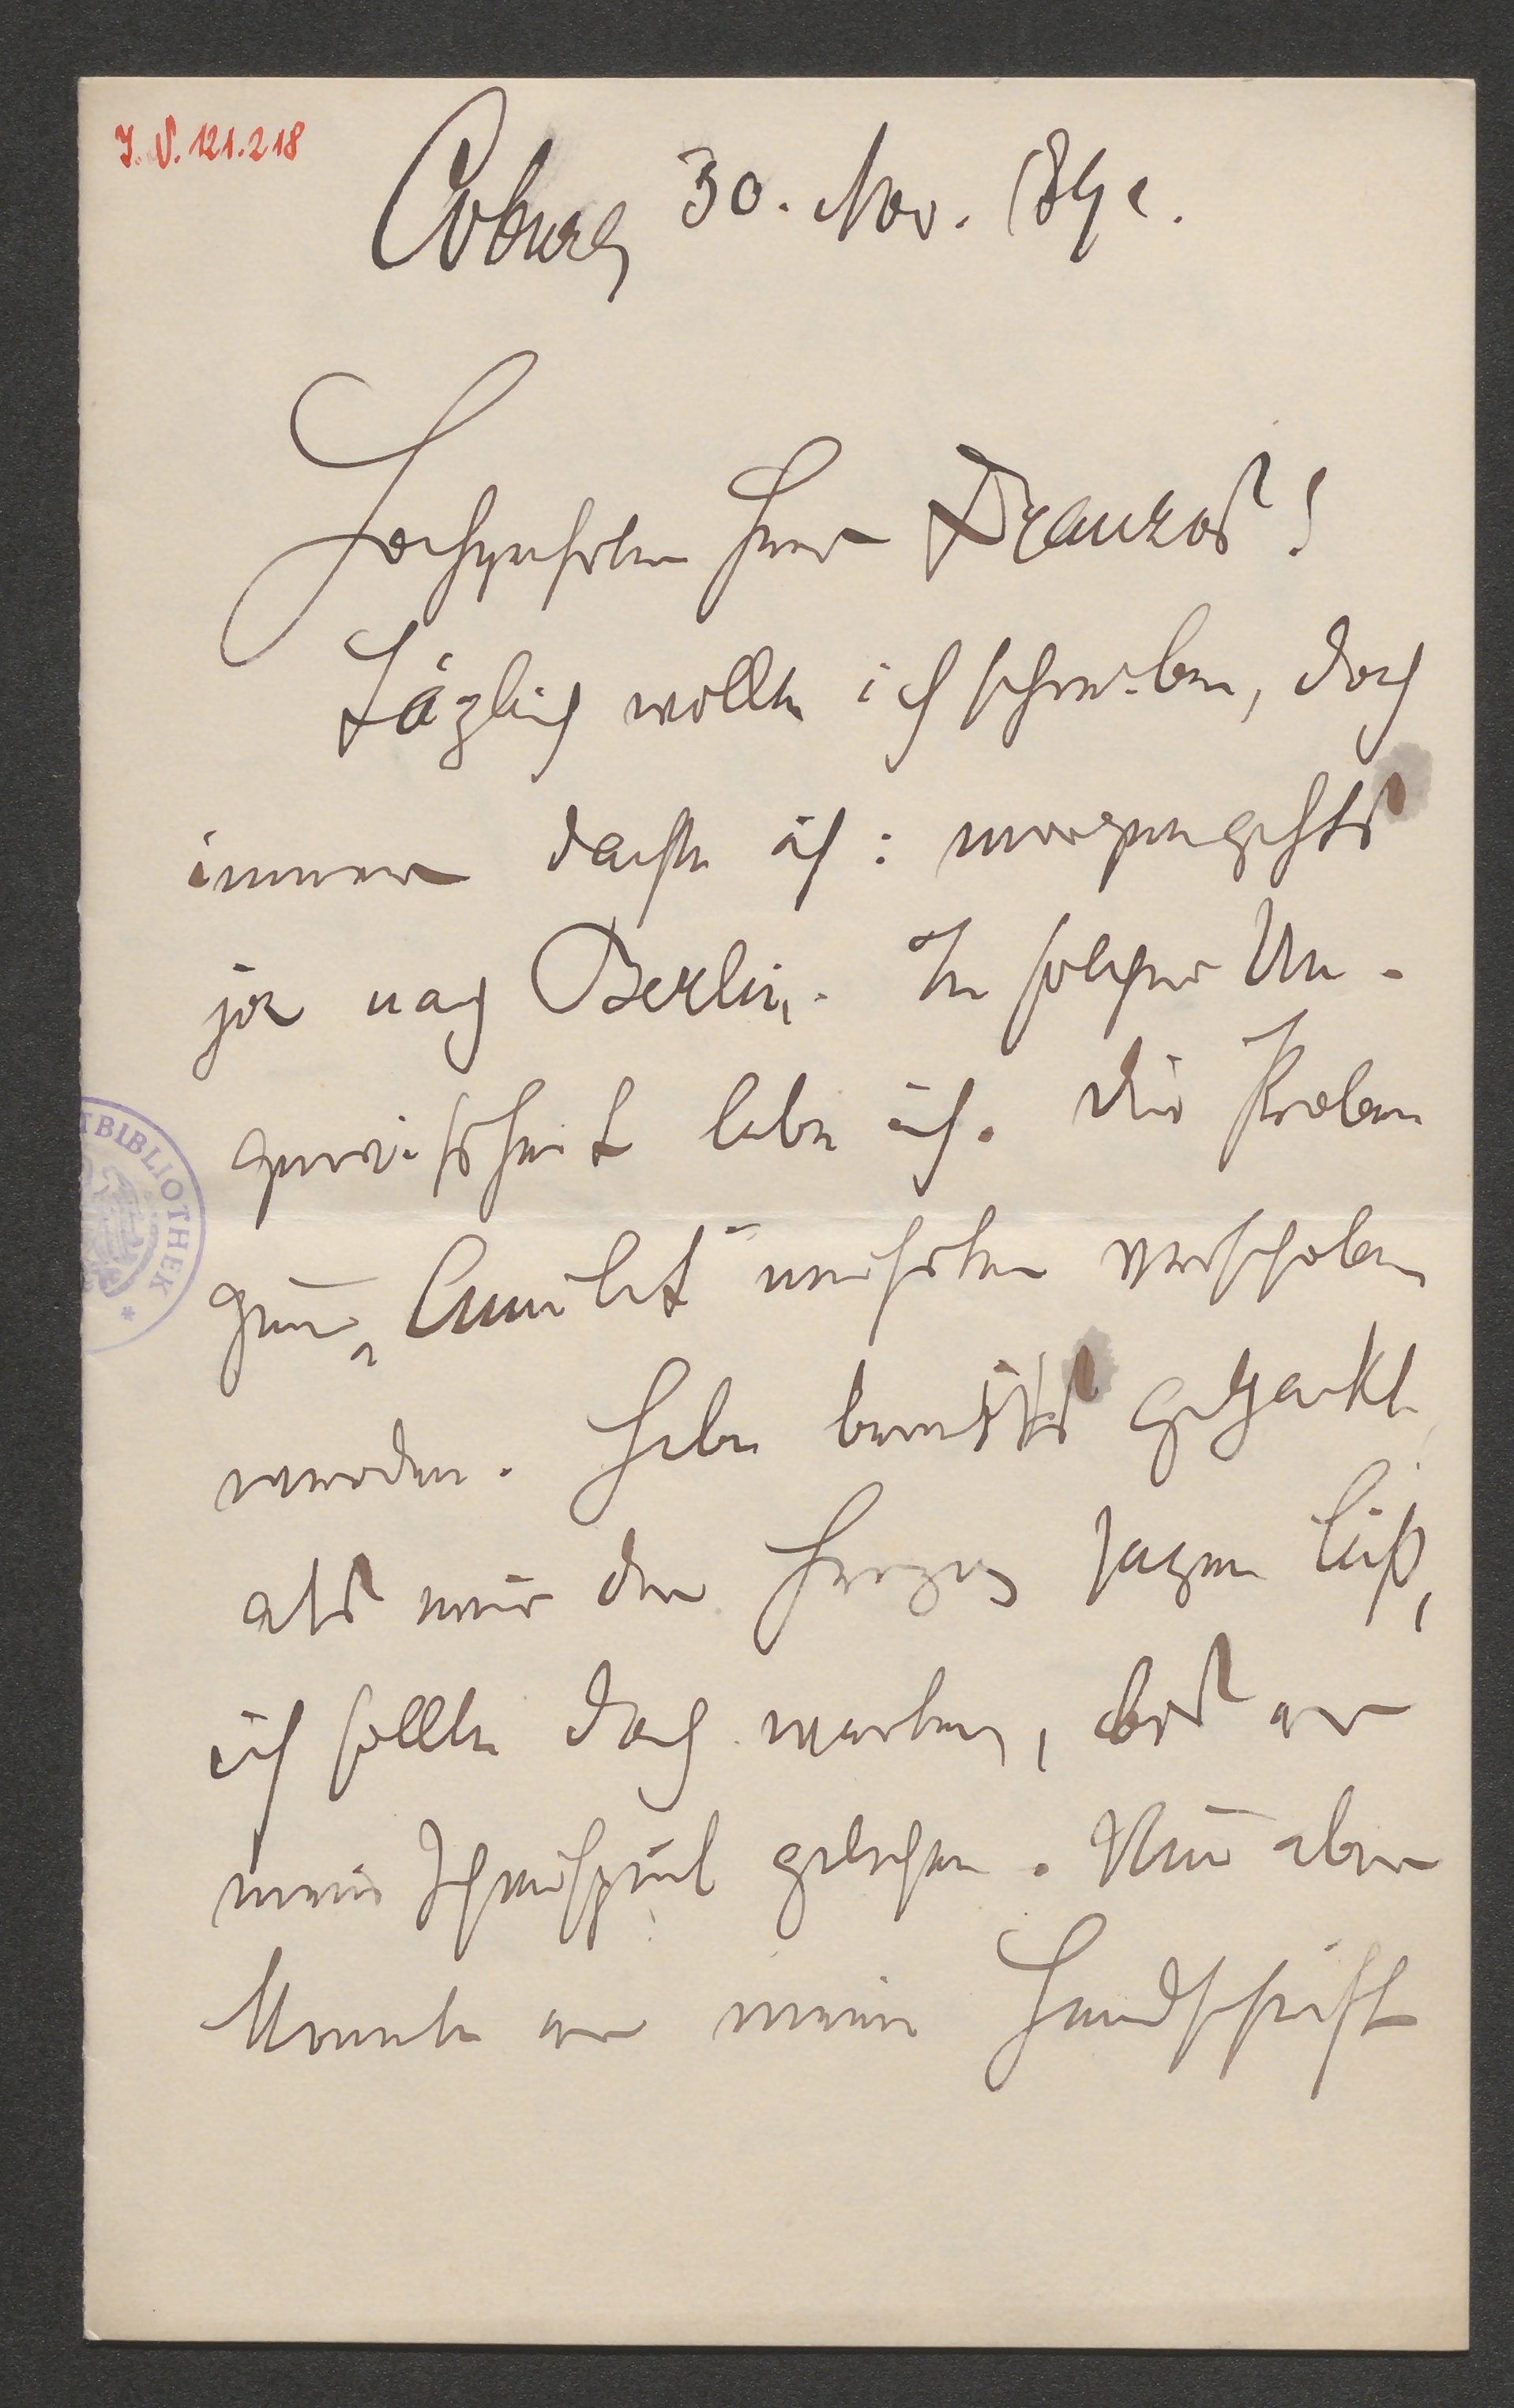 J. N. 121.218
Coburg 30. Nov. 189.
Hochgeehrter Herr Franzos!
Täglich wollte ich schreiben, doch
immer dachte ich: morgen gehts
ja nach Berlin. In solcher Un-
gewissheit lebe ich. Die Proben
zum „Amulet“ mussten verschoben
werden. Habe bereits gepackt
als mir der Herzog sagen ließ,
ich sollte doch warten, bis er
mein Schauspiel gelesen. Nun aber
konnte er meine Handschrift
TBIBLIOTHEK *